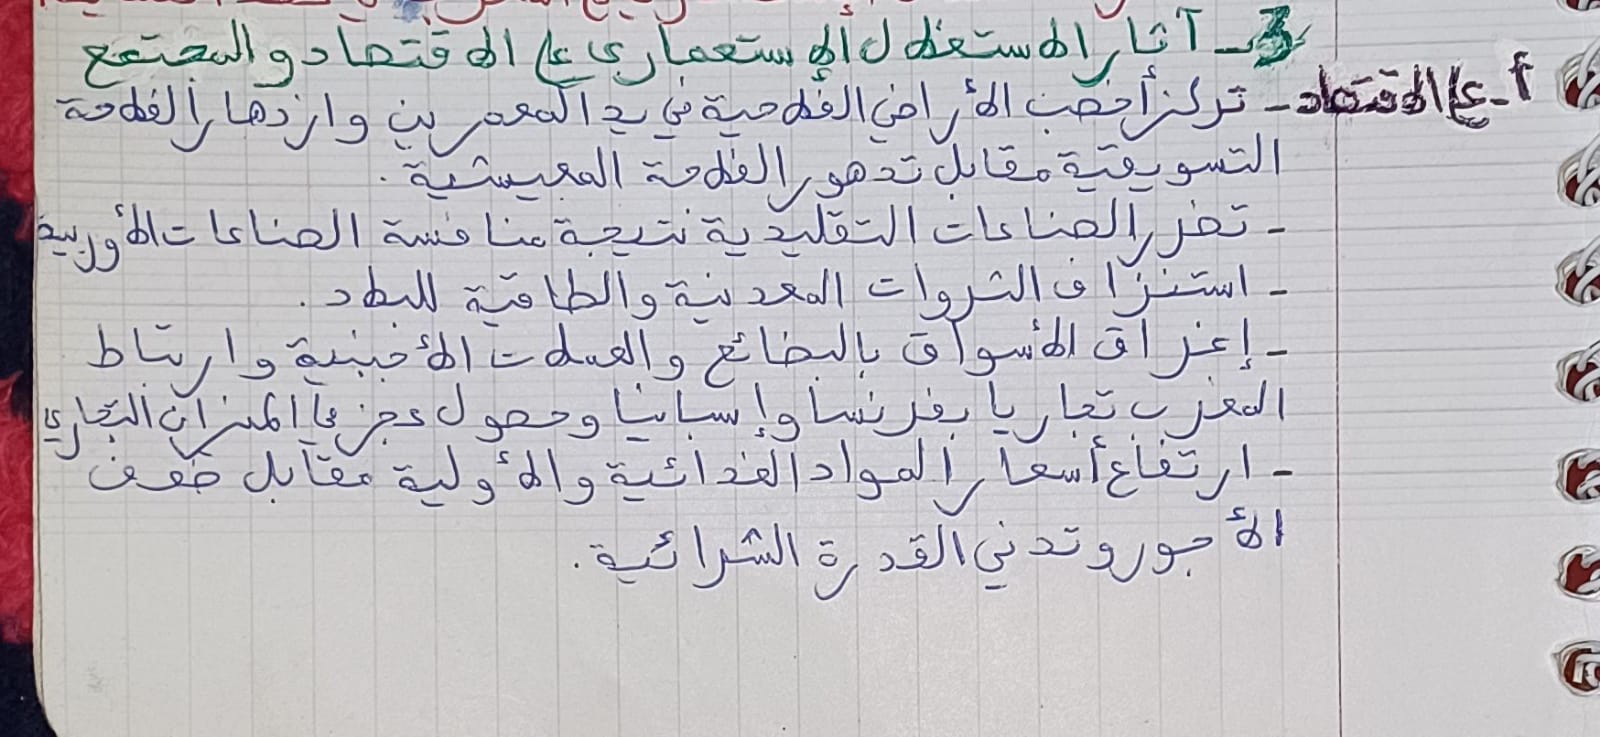 3- آثار الاستغلال الإستعماري على الاقتصاد والمجتمع
أ- على الاقتصاد - تركز أخصب الأراضي الفلاحية في يد المعمرين وازدهار الفلاحة
التسويقية مقابل تدهور الفلاحة المعيشية.
- تضرر الصناعات التقليدية نتيجة منافسة الصناعات الأوربية
- استنزاف الثروات المعدنية والطاقية للبلاد.
- إغراق الأسواق بالبضائع والعملات الأجنبية وارتباط
المغرب تجاريا بفرنسا وإسبانيا وحصول عجز في الميزان التجاري
- ارتفاع أسعار المواد الغدائية والأولية مقابل ضعف
الأجور وتدني القدرة الشرائية.